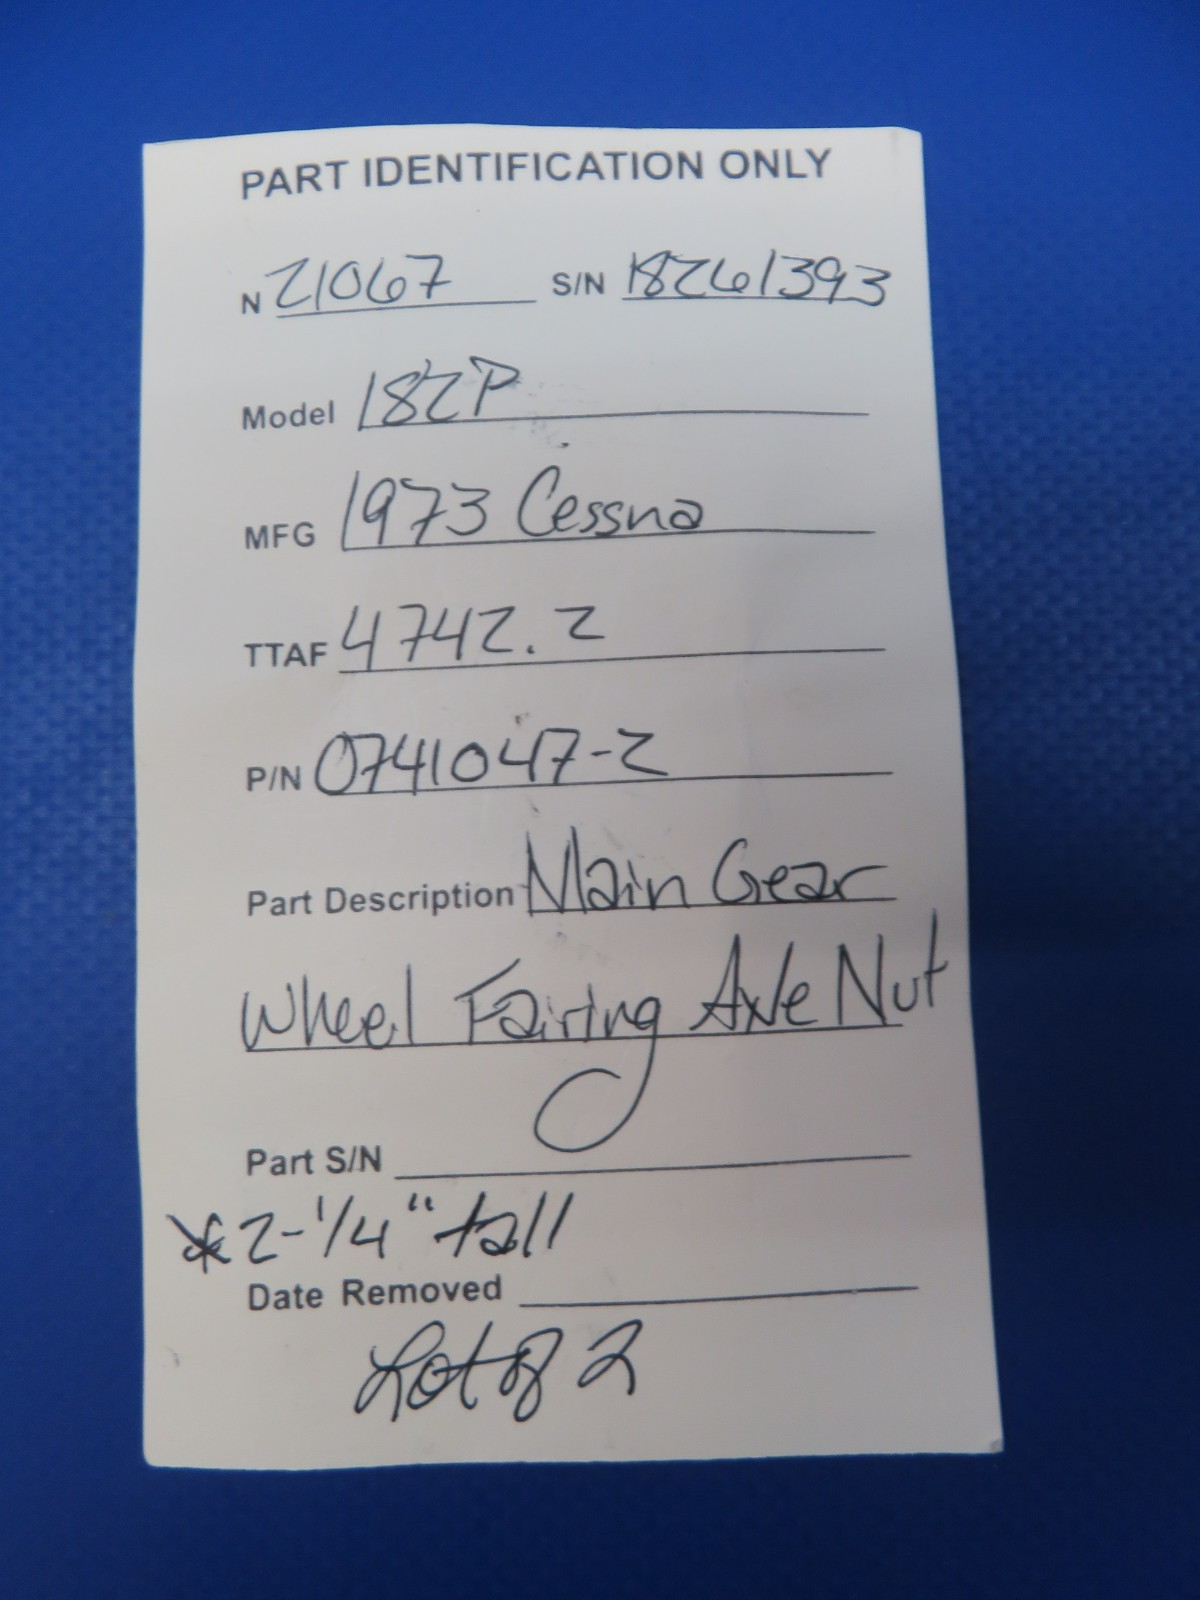 PART IDENTIFICATION ONLY
N 21067 S/N 18261393
Model 182P
MFG 1973 Cessna
TTAF 4742.2
P/N 0741047-2
Part Description Main Gear
Wheel Fairing Axle Nut
Part S/N
*2-1/4" tall
Date Removed
Lot of 2